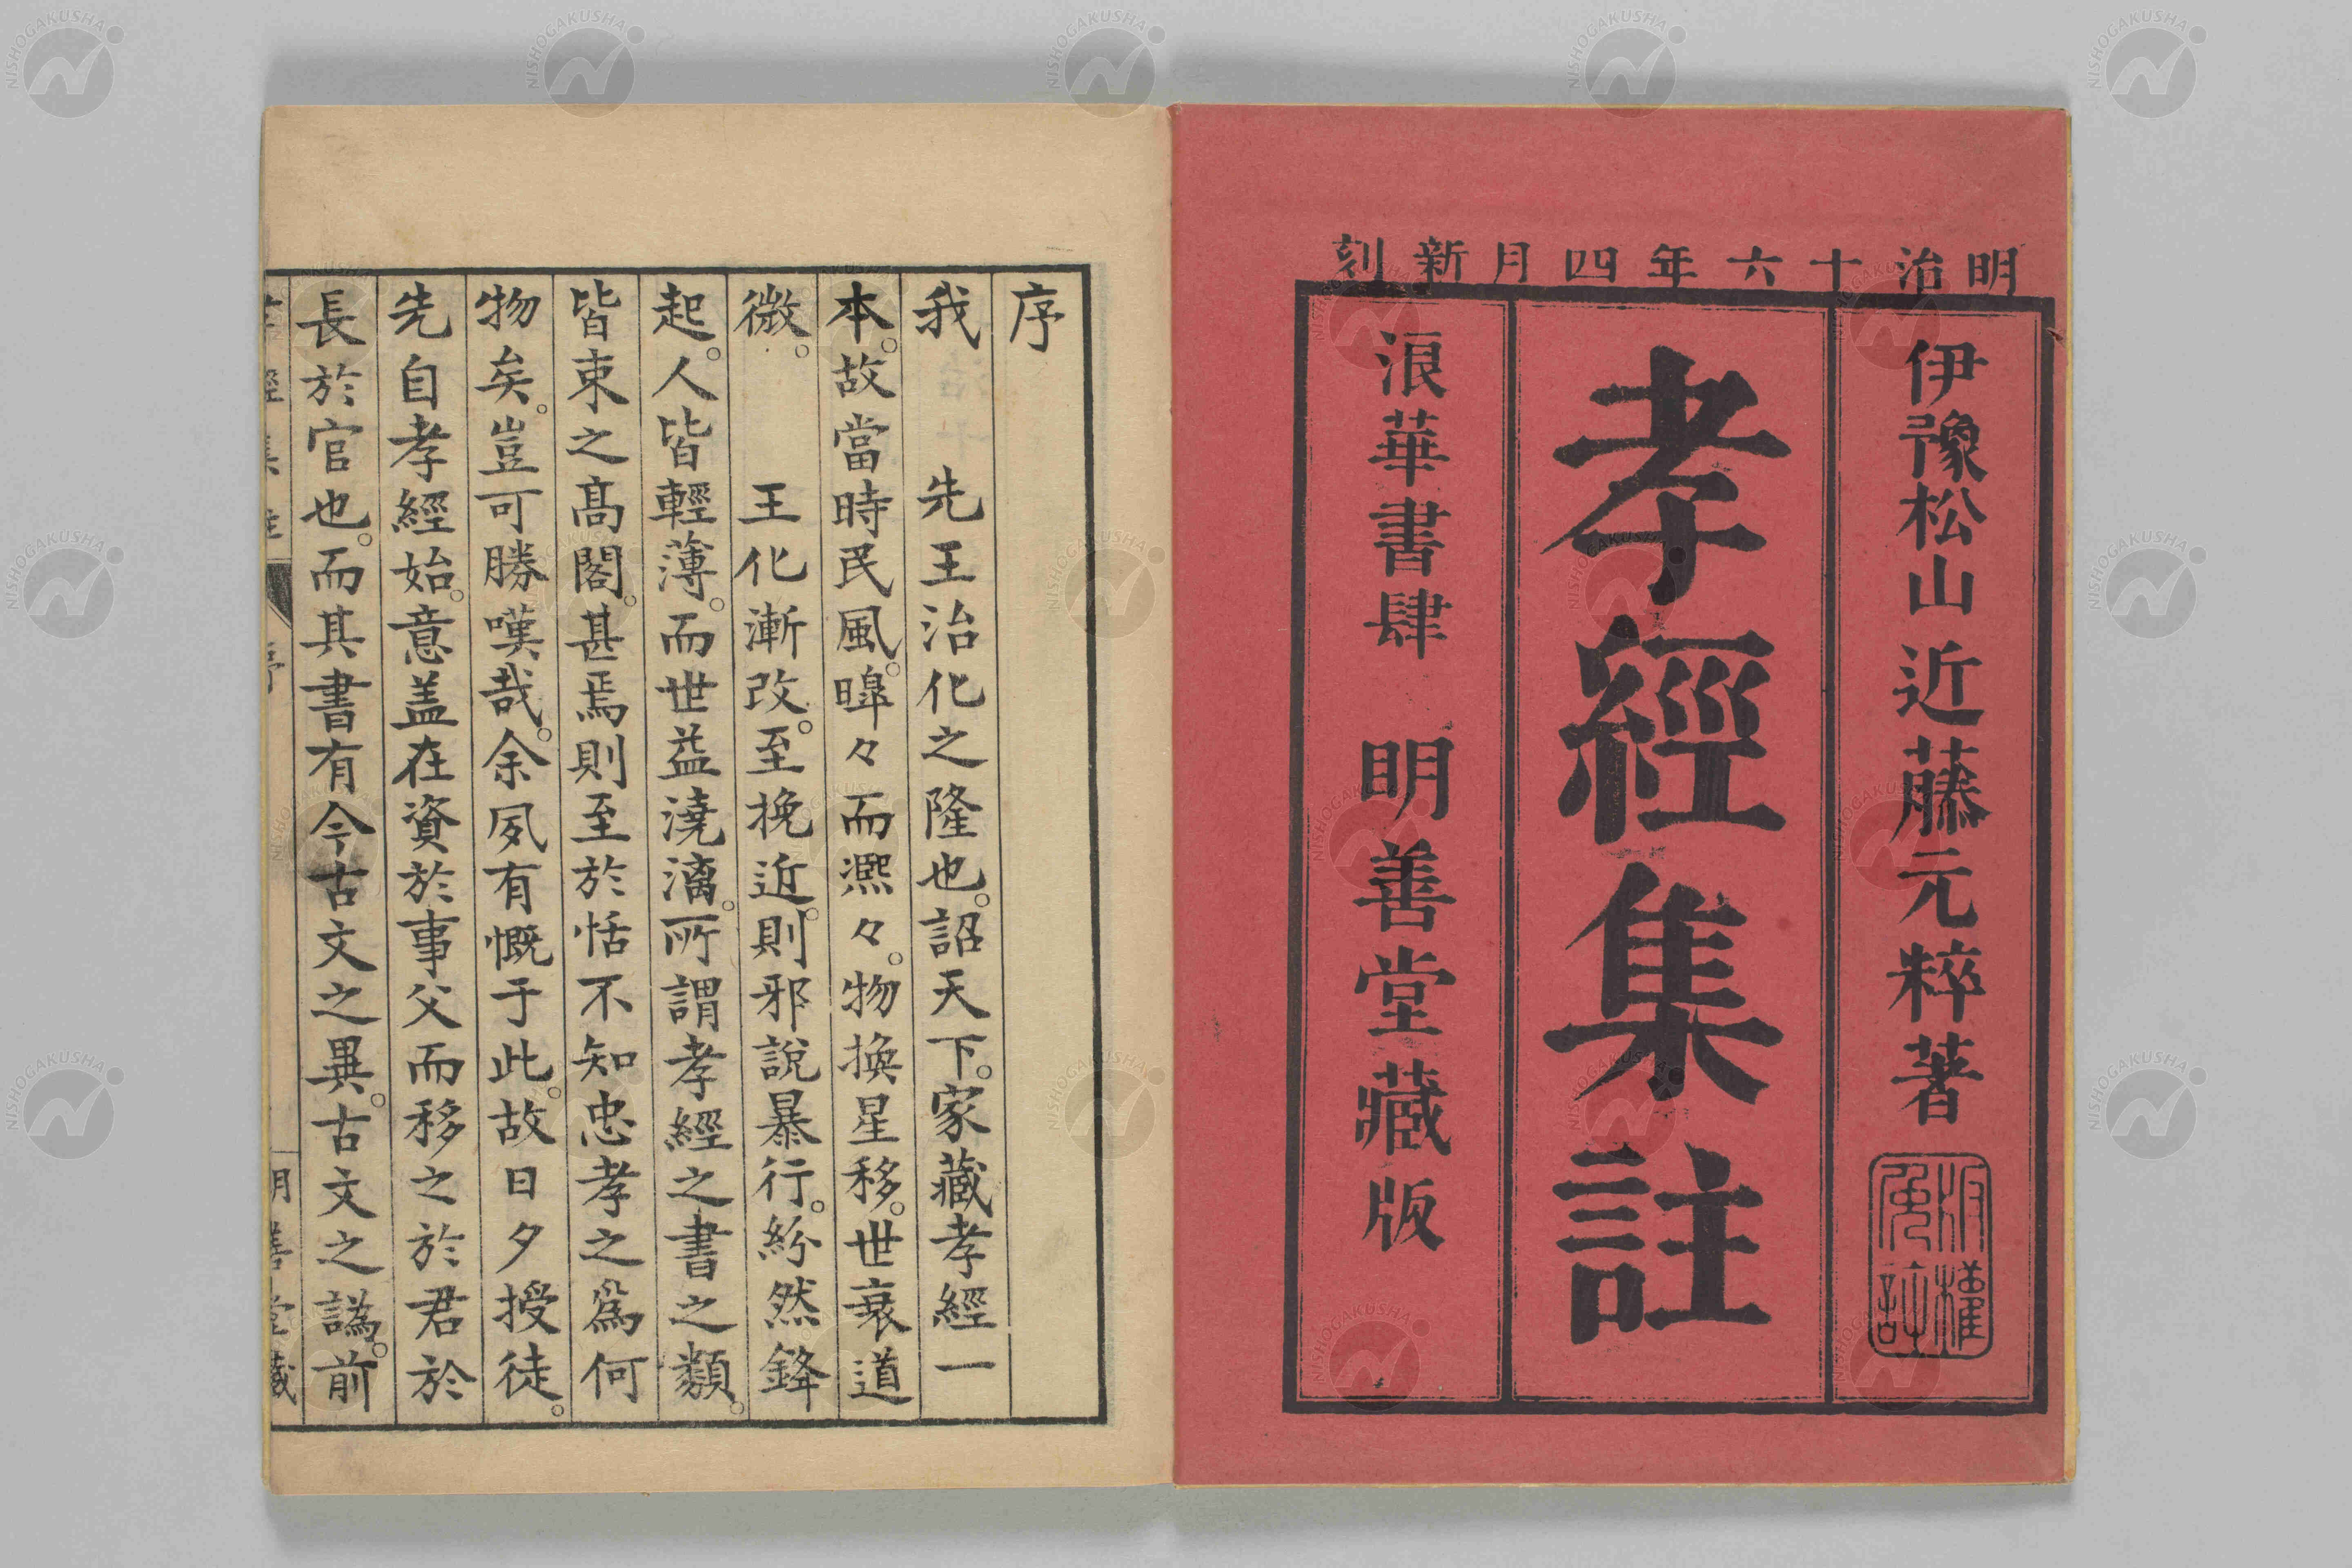 明治十六年四月新刻
伊豫松山 近藤元粹著
版權
免許
孝經集註
浪華書肆 明善堂藏版
序
我 先王治化之隆也。詔天下。家藏孝經一
本。故當時民風。皞々而凞々。物換星移。世衰道
微。 王化漸改。至挽近。則邪說暴行。紛然鋒
起。人皆輕薄。而世益澆漓。所謂孝經之書之類。
皆束之高閣。甚焉則至於恬不知忠孝之爲何
物矣。豈可勝嘆哉。余夙有慨于此。故日夕授徒。
先自孝經始。意盖在資於事父而移之於君於
長於官也。而其書有今古文之異。古文之譌。前
孝經集註 序 明善堂藏
NISHOGAKUSHA